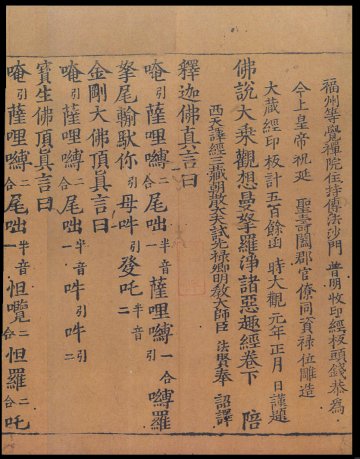 福州等覺禪院住持傳法沙門 普明收印經板頭錢恭爲
今上皇帝祝延 聖壽闔郡官僚同資祿位雕造
大藏經印板計五百餘函 時大觀元年正月 日謹題
佛說大乘觀想曼拏羅淨諸惡趣經卷下 陪
西天譯經三藏朝散大夫試光祿卿明教大師臣 法賢奉 詔譯
釋迦佛真言曰
唵引薩哩嚩二合尾咄一半音薩哩嚩引一合嚩羅
拏尾輸馱你引母吽引發吒二半音
金剛大佛頂真言曰
唵引薩哩嚩二合尾咄一半音吽引吽引二
寶生佛頂真言曰
唵引薩哩嚩二合尾咄一半音怛嚂二合怛羅二合吒